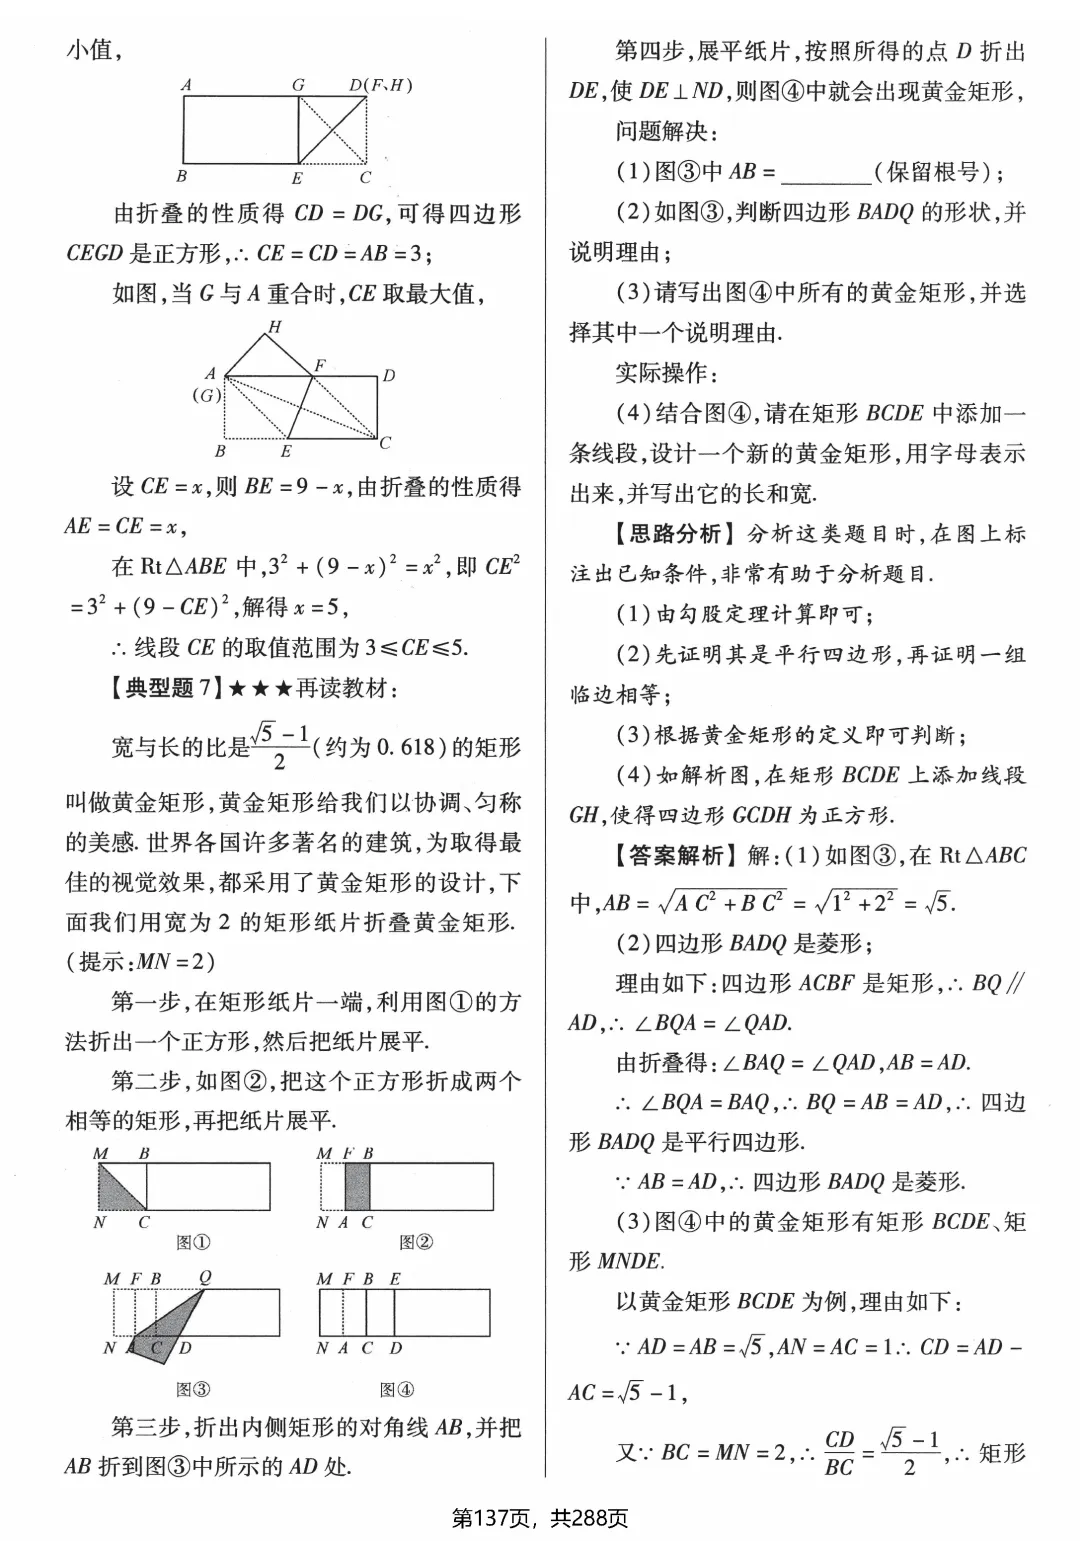 小值,
A G D(F、H)
B E C
由折叠的性质得 CD = DG,可得四边形
CEGD 是正方形,∴ CE = CD = AB = 3;
如图,当 G 与 A 重合时,CE 取最大值,
H
A F D
(G)
B E C
设 CE = x,则 BE = 9 - x,由折叠的性质得
AE = CE = x,
在 Rt△ABE 中,3² + (9 - x)² = x²,即 CE²
= 3² + (9 - CE)²,解得 x = 5,
∴ 线段 CE 的取值范围为 3≤CE≤5.
【典型题 7】★★★再读教材:
宽与长的比是(√5 - 1)/2(约为 0.618)的矩形
叫做黄金矩形,黄金矩形给我们以协调、匀称
的美感. 世界各国许多著名的建筑,为取得最
佳的视觉效果,都采用了黄金矩形的设计,下
面我们用宽为 2 的矩形纸片折叠黄金矩形.
(提示:MN = 2)
第一步,在矩形纸片一端,利用图①的方
法折出一个正方形,然后把纸片展平.
第二步,如图②,把这个正方形折成两个
相等的矩形,再把纸片展平.
M B M F B
N C N A C
图① 图②
M F B Q M F B E
N A C D N A C D
图③ 图④
第三步,折出内侧矩形的对角线 AB,并把
AB 折到图③中所示的 AD 处.
第四步,展平纸片,按照所得的点 D 折出
DE,使 DE⊥ND,则图④中就会出现黄金矩形,
问题解决:
(1)图③中 AB = ________(保留根号);
(2)如图③,判断四边形 BADQ 的形状,并
说明理由;
(3)请写出图④中所有的黄金矩形,并选
择其中一个说明理由.
实际操作:
(4)结合图④,请在矩形 BCDE 中添加一
条线段,设计一个新的黄金矩形,用字母表示
出来,并写出它的长和宽.
【思路分析】分析这类题目时,在图上标
注出已知条件,非常有助于分析题目.
(1)由勾股定理计算即可;
(2)先证明其是平行四边形,再证明一组
临边相等;
(3)根据黄金矩形的定义即可判断;
(4)如解析图,在矩形 BCDE 上添加线段
GH,使得四边形 GCDH 为正方形.
【答案解析】解:(1)如图③,在 Rt△ABC
中,AB = √(A C² + B C²) = √(1² + 2²) = √5.
(2)四边形 BADQ 是菱形;
理由如下:四边形 ACBF 是矩形,∴ BQ∥
AD,∴ ∠BQA = ∠QAD.
由折叠得:∠BAQ = ∠QAD,AB = AD.
∴ ∠BQA = BAQ,∴ BQ = AB = AD,∴ 四边
形 BADQ 是平行四边形.
∵ AB = AD,∴ 四边形 BADQ 是菱形.
(3)图④中的黄金矩形有矩形 BCDE、矩
形 MNDE.
以黄金矩形 BCDE 为例,理由如下:
∵ AD = AB = √5,AN = AC = 1∴ CD = AD -
AC = √5 - 1,
又∵ BC = MN = 2,∴ CD/BC = (√5 - 1)/2,∴ 矩形
第137页，共288页